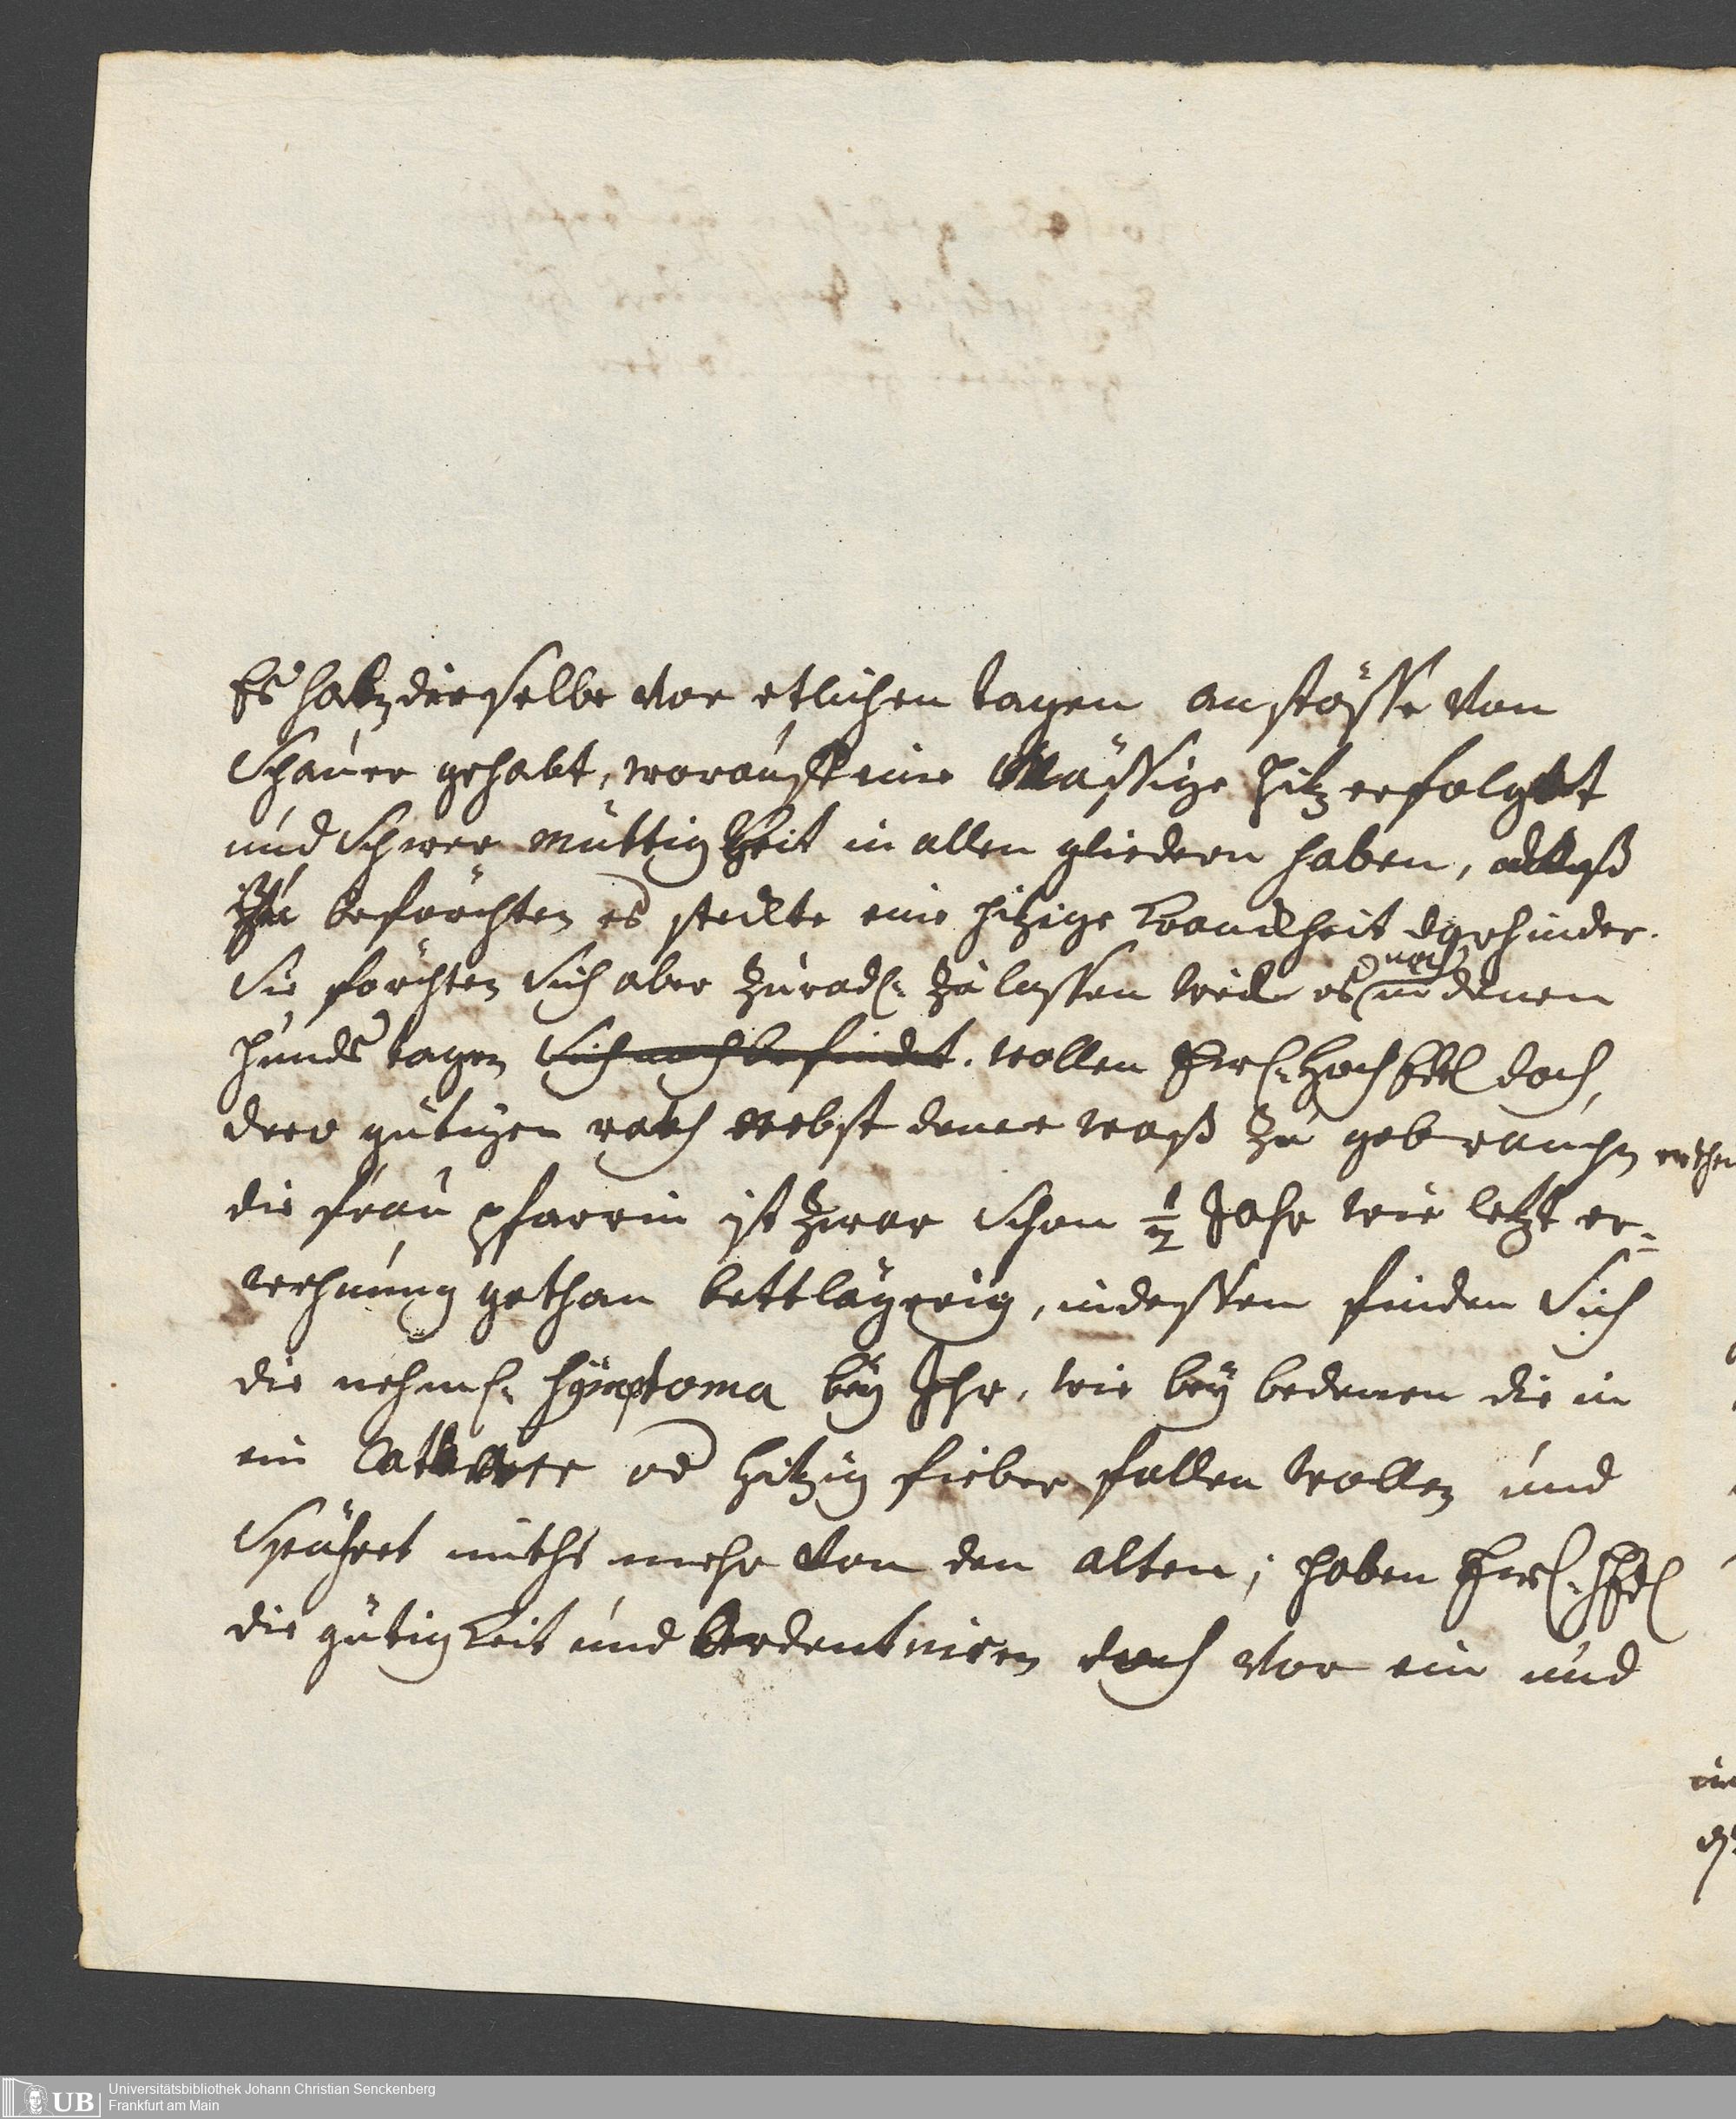 Es haben dieselbe vor etlichen tagen anstösse von
Schauer gehabt, worauf eine Mässige hitz erfolget
und Schwer müttigkeit in allen gliedern haben, alß
zu beförchten es steckte eine hitzige kranckheit darhinder.
Sie förchten Sich aber zur adl. zu lassen weil es noch in denen
hunds tagen Sich noch befindet. wollen Ewl. HochEdl doch
dero gütigen rath nebst deme waß zu gebrauchen
die frau pfarrin ist zwar Schon ½ Jahr wie letzt er=
wehnung gethan bettlägerig, indessen finden Sich
die nehml. symptoma bey Ihr, wie bey bedenen die in
ein Catharr od hitzig fieber fallen wollen und
Spühret nicht mehr von den alten; haben Ewl. HEdl
die gütigkeit und doch vor ein und
UB
Universitätsbibliothek Johann Christian Senckenberg
Frankfurt am Main